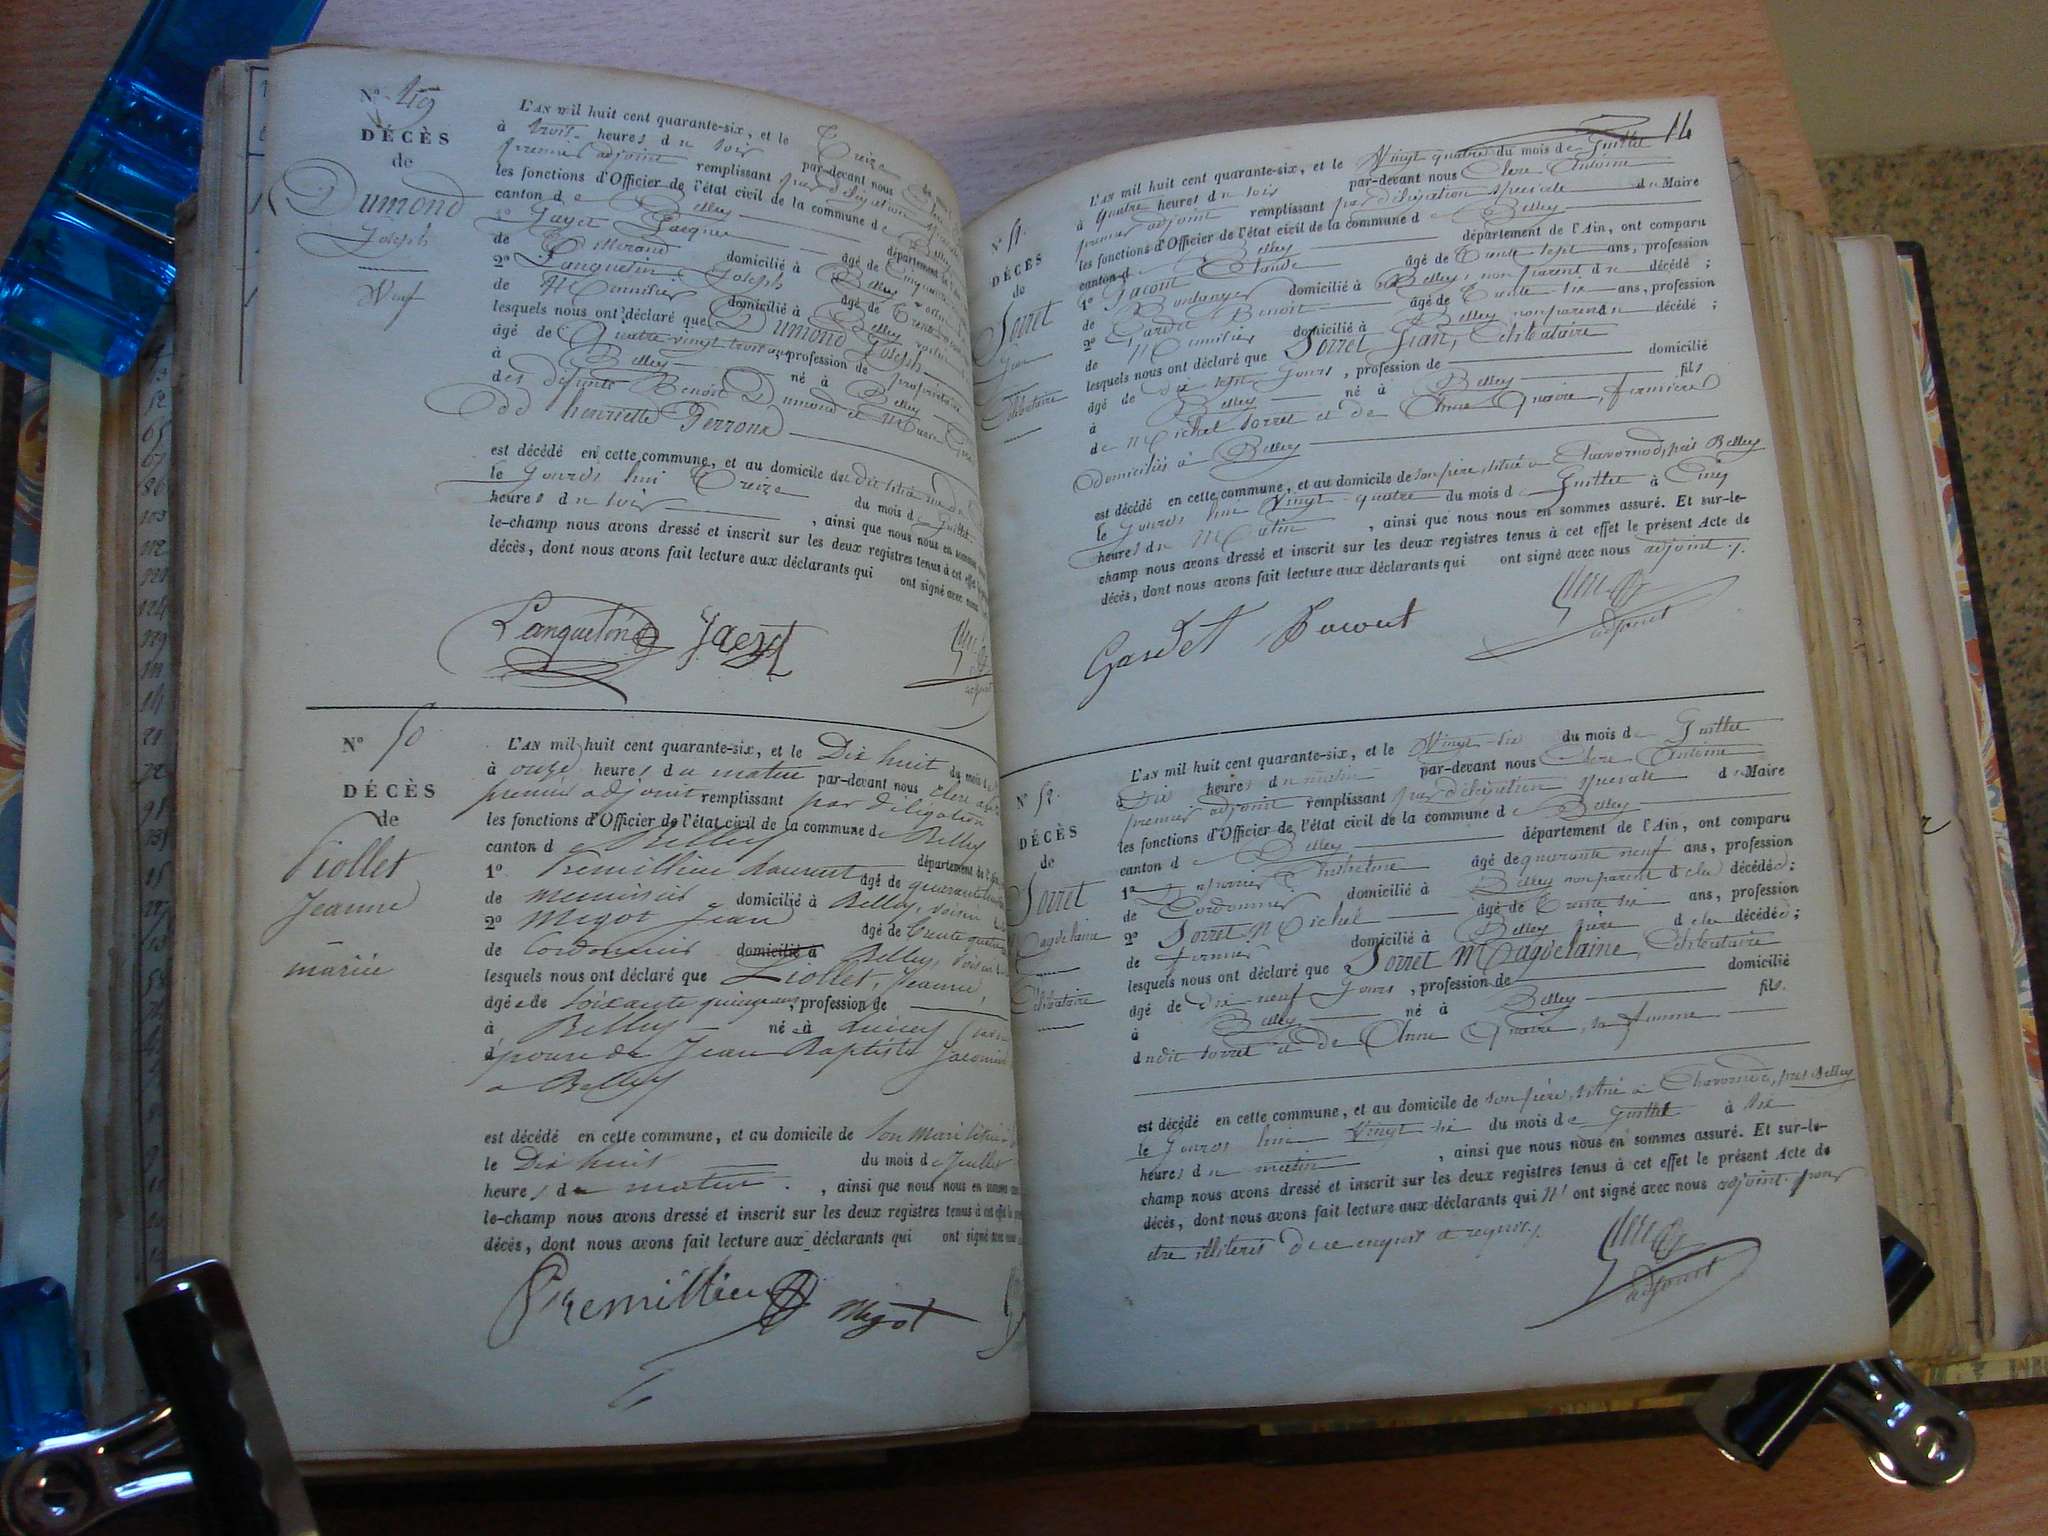 N° 49
DÉCÈS
de
Dumond
Joseph
Veuf
L'AN mil huit cent quarante-six, et le Treize
à trois heures du soir par-devant nous
premier adjoint remplissant par délégation
les fonctions d'Officier de l'état civil de la commune de
canton de Belley département
1° Jacques âgé de Cinquante
de domicilié à Belley
2° Lanqueton Joseph âgé de Trente
de Menuisier domicilié à Belley
lesquels nous ont déclaré que Dumond Joseph
âgé de Quatre vingt trois ans profession de propriétaire
à Belley né à Belley
des défunts Benoit Dumond et
henriette Perroux
est décédé en cette commune, et au domicile du dit
le jourd'hui Treize du mois de juillet
heures du soir, ainsi que nous nous en sommes
le-champ nous avons dressé et inscrit sur les deux registres tenus à cet effet
décès, dont nous avons fait lecture aux déclarants qui ont signé avec nous
Lanqueton
adjoint
N° 50
DÉCÈS
de
Piollet
Jeanne
mariée
L'AN mil huit cent quarante-six, et le Dix huit du mois de
à onze heures du matin par-devant nous Clerc
premier adjoint remplissant par délégation
les fonctions d'Officier de l'état civil de la commune de Belley
canton de Belley département de l'Ain
1° Premillieu Laurent âgé de quarante
de menuisier domicilié à Belley, voisin
2° Migot Jean âgé de trente quatre
de Cordonnier domicilié à Belley, voisin
lesquels nous ont déclaré que Piollet, Jeanne,
âgée de soixante quinze ans, profession de
à Belley née à
épouse de Jean Baptiste
à Belley
est décédé en cette commune, et au domicile de son mari
le Dix huit du mois de juillet
heures du matin, ainsi que nous nous en sommes
le-champ nous avons dressé et inscrit sur les deux registres tenus à cet effet
décès, dont nous avons fait lecture aux déclarants qui ont signé avec nous
Premillieu Migot
14
N° 51.
DÉCÈS
de
Sorret
Jean
Célibataire
L'AN mil huit cent quarante-six, et le Vingt quatre du mois de Juillet
à quatre heures du soir par-devant nous Clerc Antoine
premier adjoint remplissant par délégation spéciale du Maire
les fonctions d'Officier de l'état civil de la commune de Belley
canton de Belley département de l'Ain, ont comparu
1° Jacout Claude âgé de Trente sept ans, profession
de Boulanger domicilié à Belley, non parent du décédé ;
2° Gardet Benoit âgé de Trente six ans, profession
de Menuisier domicilié à Belley non parent du décédé ;
lesquels nous ont déclaré que Sorret Jean, Célibataire
âgé de dix sept jours, profession de domicilié
à Belley né à Belley fils
de Michel Sorret et de Anne , fermiers
domiciliés à Belley
est décédé en cette commune, et au domicile de son père, situé à Chavornod, près Belley
le jourd'hui Vingt-quatre du mois de Juillet à Cinq
heures du Matin, ainsi que nous nous en sommes assuré. Et sur-le-
champ nous avons dressé et inscrit sur les deux registres tenus à cet effet le présent Acte de
décès, dont nous avons fait lecture aux déclarants qui ont signé avec nous adjoint ./.
Gardet Jacout
adjoint
N° 52.
DÉCÈS
de
Sorret
Magdelaine
Célibataire
L'AN mil huit cent quarante-six, et le Vingt-six du mois de Juillet
à Dix heures du matin par-devant nous Clerc Antoine
premier adjoint remplissant par délégation spéciale du Maire
les fonctions d'Officier de l'état civil de la commune de Belley
canton de Belley département de l'Ain, ont comparu
1° Anthelme âgé de quarante neuf ans, profession
de Cordonnier domicilié à Belley non parent de la décédée ;
2° Sorret Michel âgé de Trente six ans, profession
de fermier domicilié à Belley père de la décédée ;
lesquels nous ont déclaré que Sorret Magdelaine, Célibataire
âgé de dix neuf jours, profession de domicilié
à Belley né à Belley fils.
du dit Sorret et de Anne , sa femme
est décédé en cette commune, et au domicile de son père, situé à Chavornod, près Belley
le jourd'hui Vingt-six du mois de Juillet à six
heures du matin, ainsi que nous nous en sommes assuré. Et sur-le-
champ nous avons dressé et inscrit sur les deux registres tenus à cet effet le présent Acte de
décès, dont nous avons fait lecture aux déclarants qui n'ont signé avec nous adjoint pour
être illiterés de ce enquis et requis./.
adjoint